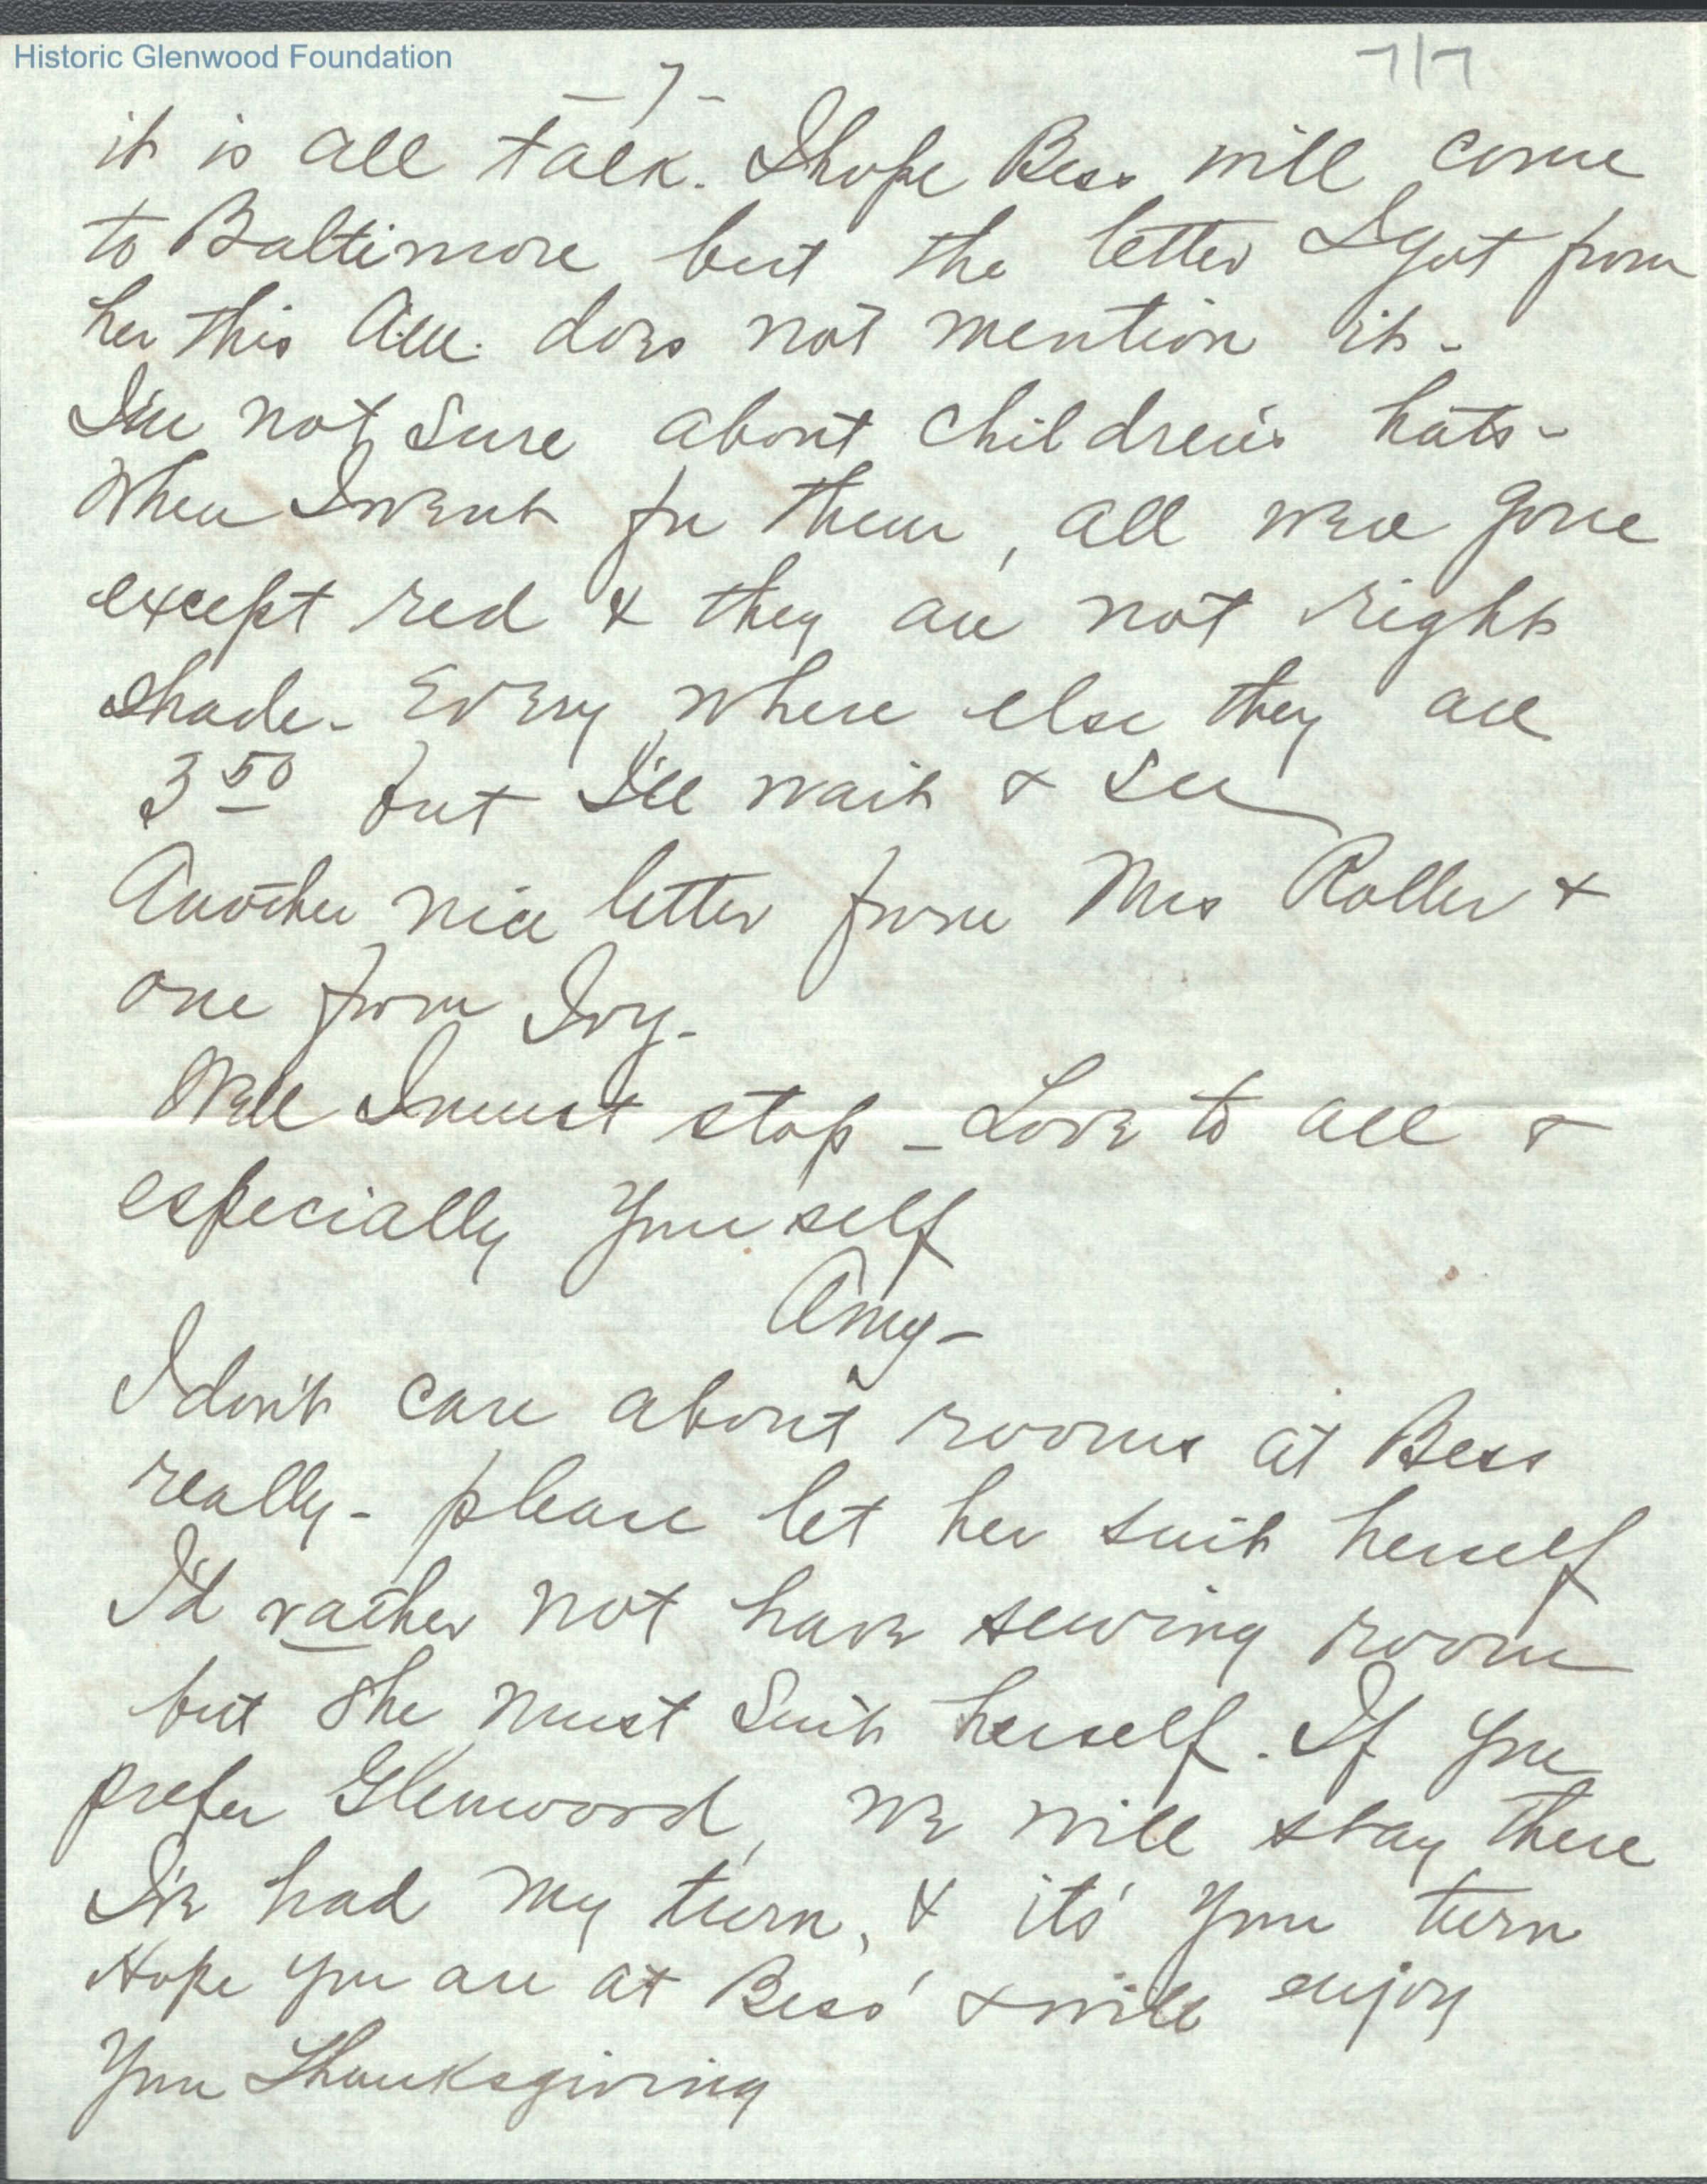 Historic Glenwood Foundation
7/7
-7-
it is all talk. I hope Bess will come
to Baltimore but the letter I got from
her this A.M. does not mention it-
I'm not sure about children's hats-
When I went for them, all were gone
except red & they are not right
shade- Every where else they are
3 50 but I'll wait & see
Another nice letter from Mrs Roller &
one from Ivy-
Well I must stop - Love to all &
especially your self
Amy-
I don't care about rooms at Bess
really- please let her suit herself
I'd rather not have sewing room
but she must suit herself. If you
prefer Glenwood, we will stay there
I've had my turn, & it's your turn
Hope you are at Bess' & will enjoy
your Thanksgiving